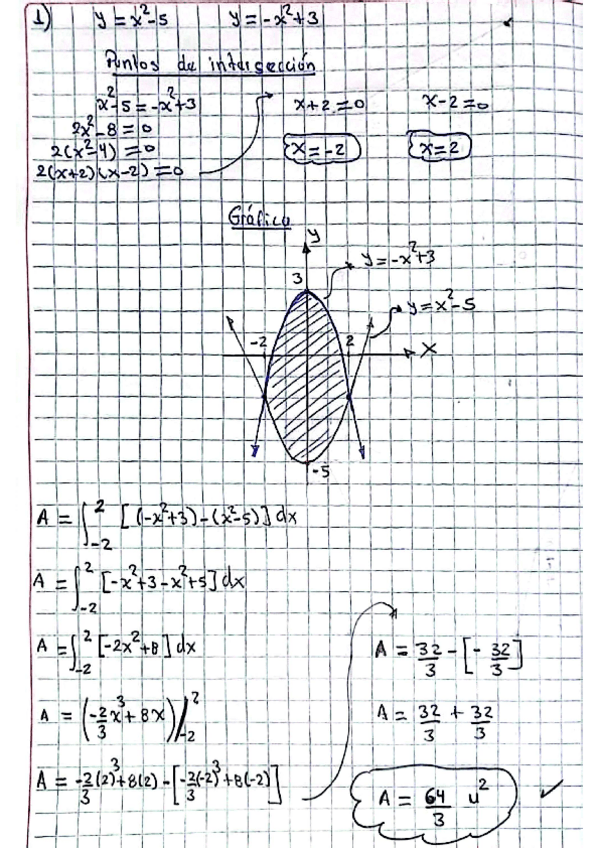 1) y = x²-5 y = -x²+3
Puntos de intersección
x²-5 = -x²+3 x+2 = 0 x-2 = 0
2x²-8 = 0
2(x²-4) = 0 x = -2 x = 2
2(x+2)(x-2) = 0
Gráfica
y
3 y = -x²+3
y = x²-5
-2 2
x
-5
A = ∫₋₂² [(-x²+3)-(x²-5)] dx
A = ∫₋₂² [-x²+3-x²+5] dx
A = ∫₋₂² [-2x²+8] dx
A = (-2/3 x³ + 8x) /₋₂²
A = -2/3 (2)³+8(2) - [-2/3 (-2)³+8(-2)]
A = 32/3 - [- 32/3]
A = 32/3 + 32/3
A = 64/3 u²